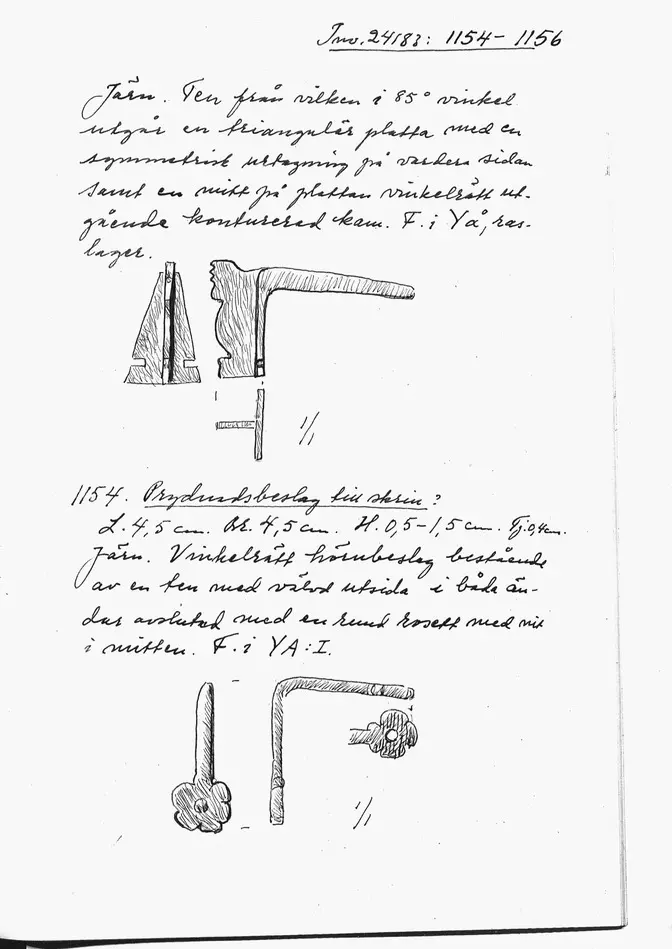 Inv. 24183: 1154 – 1156
Järn. Ten från vilken i 85° vinkel
utgår en triangulär platta med en
symmetrisk urtagning på vardera sidan
samt en mitt på plattan vinkelrätt ut-
gående konturerad kam. F. i YÅ, ras-
lager.
1/1
1154. Prydnadsbeslag till skrin?
L. 4,5 cm. Br. 4,5 cm. H. 0,5–1,5 cm. Tj. 0,4 cm.
Järn. Vinkelrätt hörnbeslag bestående
av en ten med välvd utsida i båda än-
dar avslutad med en rund rosett med nit
i mitten. F. i YA:I.
1/1